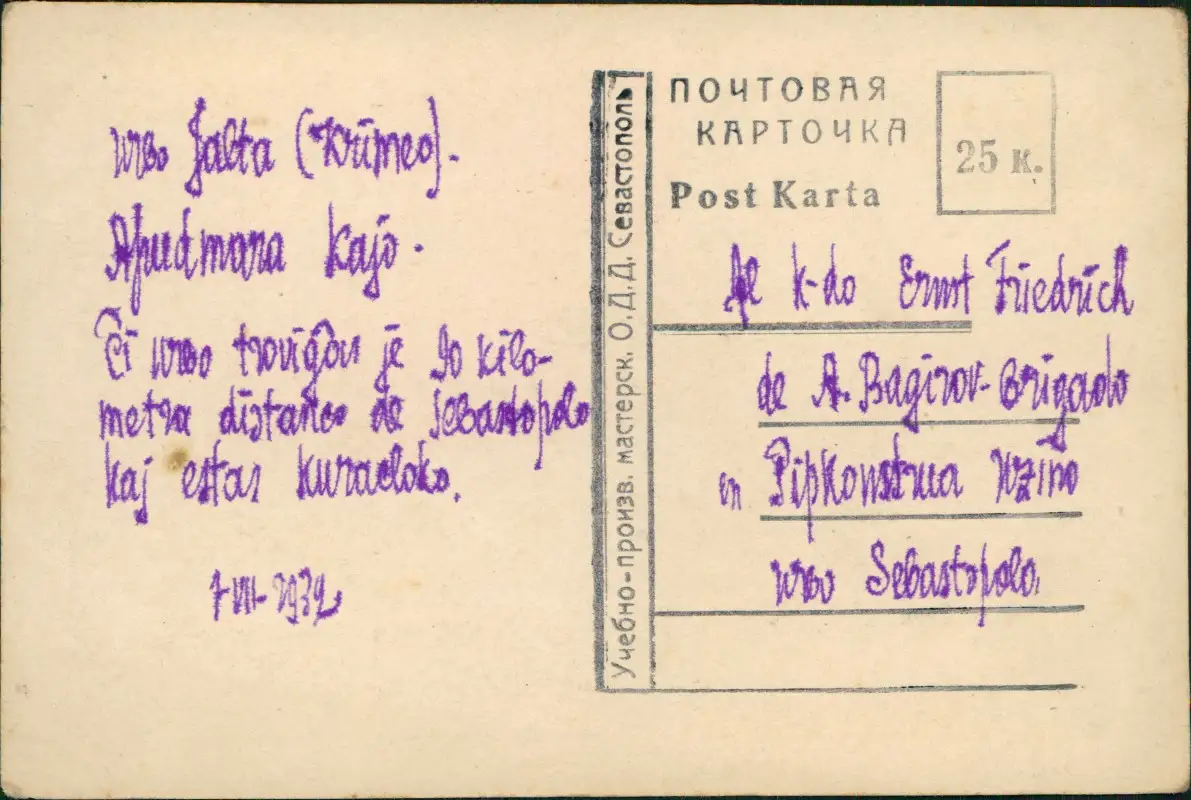 urbo Jalta (Krimeo).
Apudmara kajo.
Ĉi urbo troviĝas je 90 kilo-
metra distanco de Sebastopolo
kaj estas kuracloko.
7-VII-1932
Учебно-произв. мастерск. О.Д.Д. Севастополь
ПОЧТОВАЯ
КАРТОЧКА
25 к.
Post Karta
Al k-do Ernst Friedrich
de A. Bagirov-Brigado
en Uzino
urbo Sebastopolo